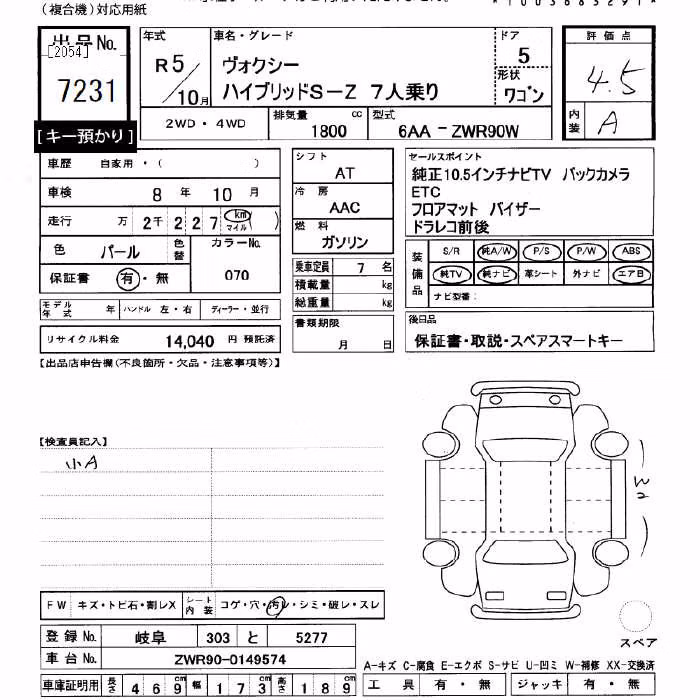 (複合機)対応用紙
出品No.
[2054]
7231
[キー預かり]
年式
R5/10月
車名・グレード
ヴォクシー
ハイブリッドS-Z 7人乗り
ドア
5
形状
ワゴン
評価点
4.5
内装
A
2WD・4WD
排気量 1800 cc
型式 6AA-ZWR90W
車歴 自家用・( )
車検 8年 10月
走行 万 2千 2 2 7 km マイル ( )
色 パール 色替
カラーNo. 070
保証書 有・無
モデル年式 年 ハンドル 左・右 ディーラー・並行
リサイクル料金 14,040 円 預託済
シフト
AT
冷房
AAC
燃料
ガソリン
乗車定員 7 名
積載量 kg
総重量 kg
書類期限
月 日
セールスポイント
純正10.5インチナビTV バックカメラ
ETC
フロアマット バイザー
ドラレコ前後
装備品
S/R 純A/W P/S P/W ABS
純TV 純ナビ 革シート 外ナビ エアB
ナビ型番:
後日品
保証書・取説・スペアスマートキー
[出品店申告欄(不良箇所・欠品・注意事項等)]
[検査員記入]
小A
FW キズ・トビ石・割レX シート内装 コゲ・穴・汚レ・シミ・破レ・スレ
登録No. 岐阜 303 と 5277
車台No. ZWR90-0149574
車庫証明用 長さ 469cm 幅 173cm 高さ 189cm
スペア
A-キズ C-腐食 E-エクボ S-サビ U-凹ミ W-補修 XX-交換済
工具 有・無 ジャッキ 有・無